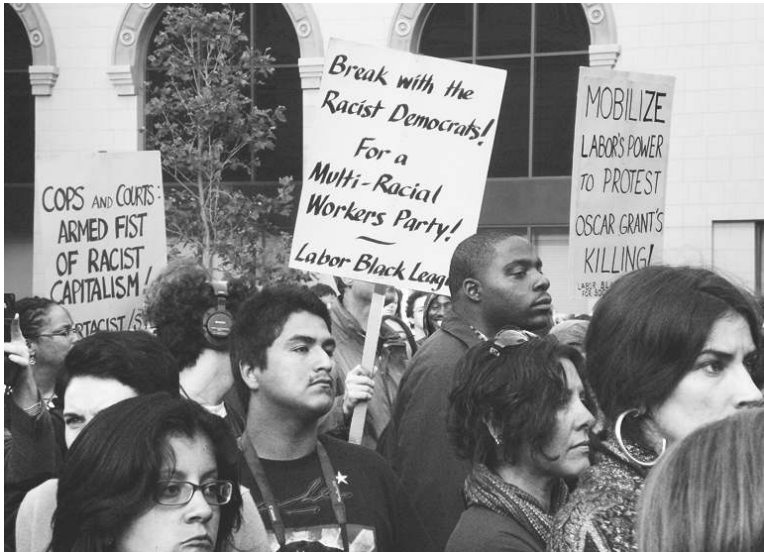 COPS AND COURTS:
ARMED FIST
OF RACIST
CAPITALISM!
Break with the
Racist Democrats!
For a
Multi-Racial
Workers Party!
Labor Black
MOBILIZE
LABOR'S POWER
TO PROTEST
OSCAR GRANT'S
KILLING!